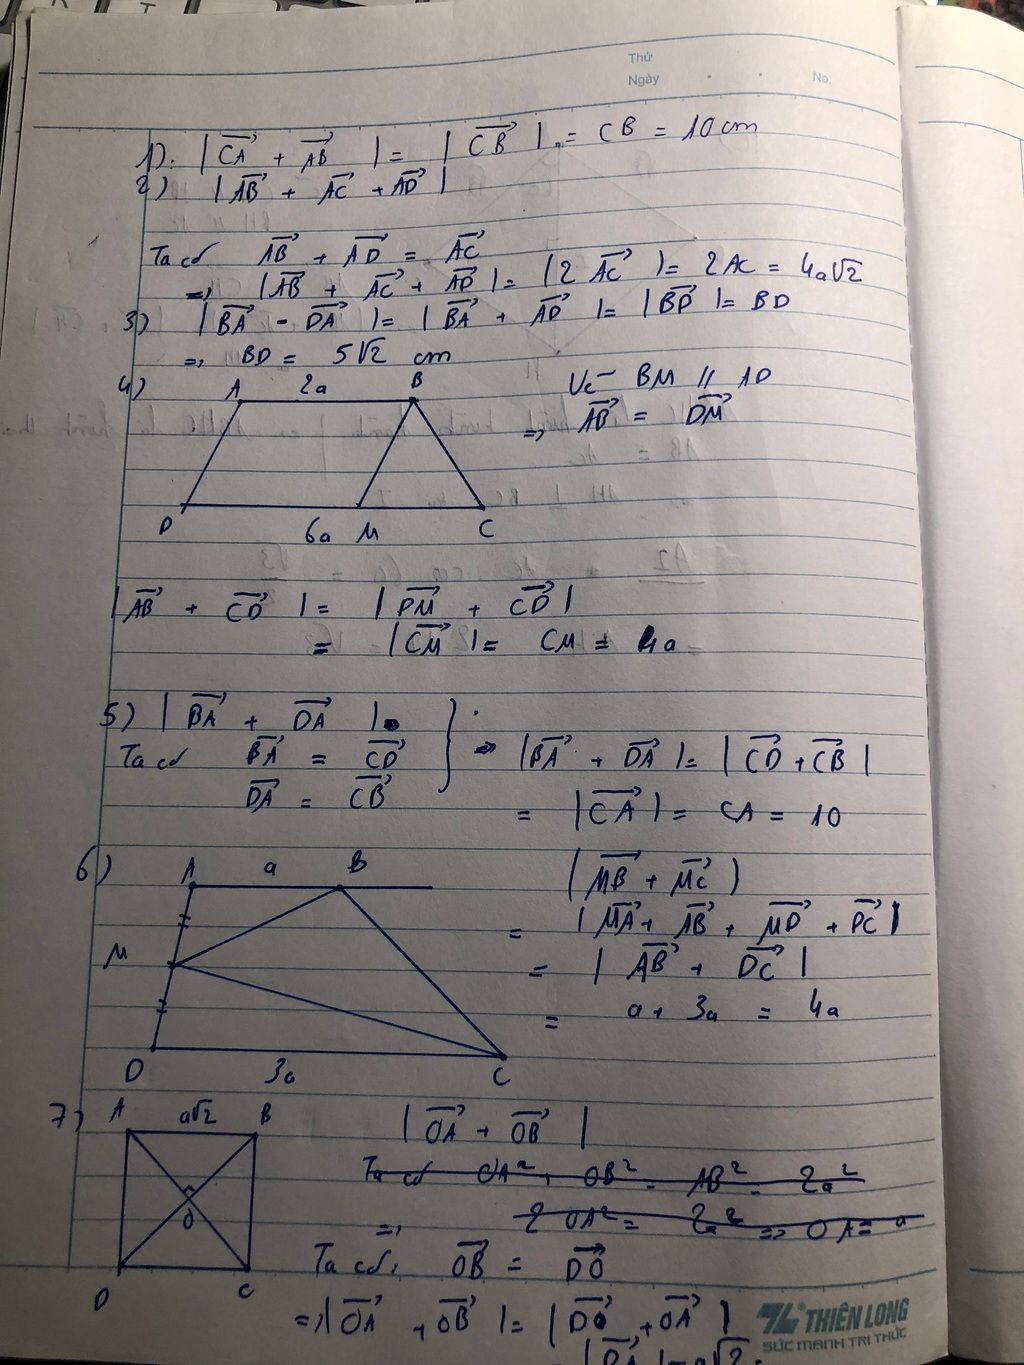 Thứ
Ngày . . No.
1). |CA→ + AB→| = |CB→| = CB = 10 cm
2) |AB→ + AC→ + AD→|
Ta có AB→ + AD→ = AC→
=> |AB→ + AC→ + AD→| = |2 AC→| = 2AC = 4a√2
3) |BA→ - DA→| = |BA→ + AD→| = |BD→| = BD
=> BD = 5√2 cm
4) A 2a B
Vẽ BM // AD
=> AB→ = DM→
D 6a M C
|AB→ + CD→| = |DM→ + CD→|
= |CM→| = CM = 4a
5) |BA→ + DA→|
Ta có BA→ = CD→
DA→ = CB→
} => |BA→ + DA→| = |CD→ + CB→|
= |CA→| = CA = 10
6) A a B
M
D 3a C
|MB→ + MC→|
= |MA→ + AB→ + MD→ + DC→|
= |AB→ + DC→|
= a + 3a = 4a
7) A a√2 B
O
D C
|OA→ + OB→|
Ta có OA² + OB² = AB² = 2a²
=> 2 OA² = 2a² => OA = a
Ta có: OB→ = DO→
=> |OA→ + OB→| = |DO→ + OA→|
= |DA→| = a√2.
THIÊN LONG
SỨC MẠNH TRI THỨC